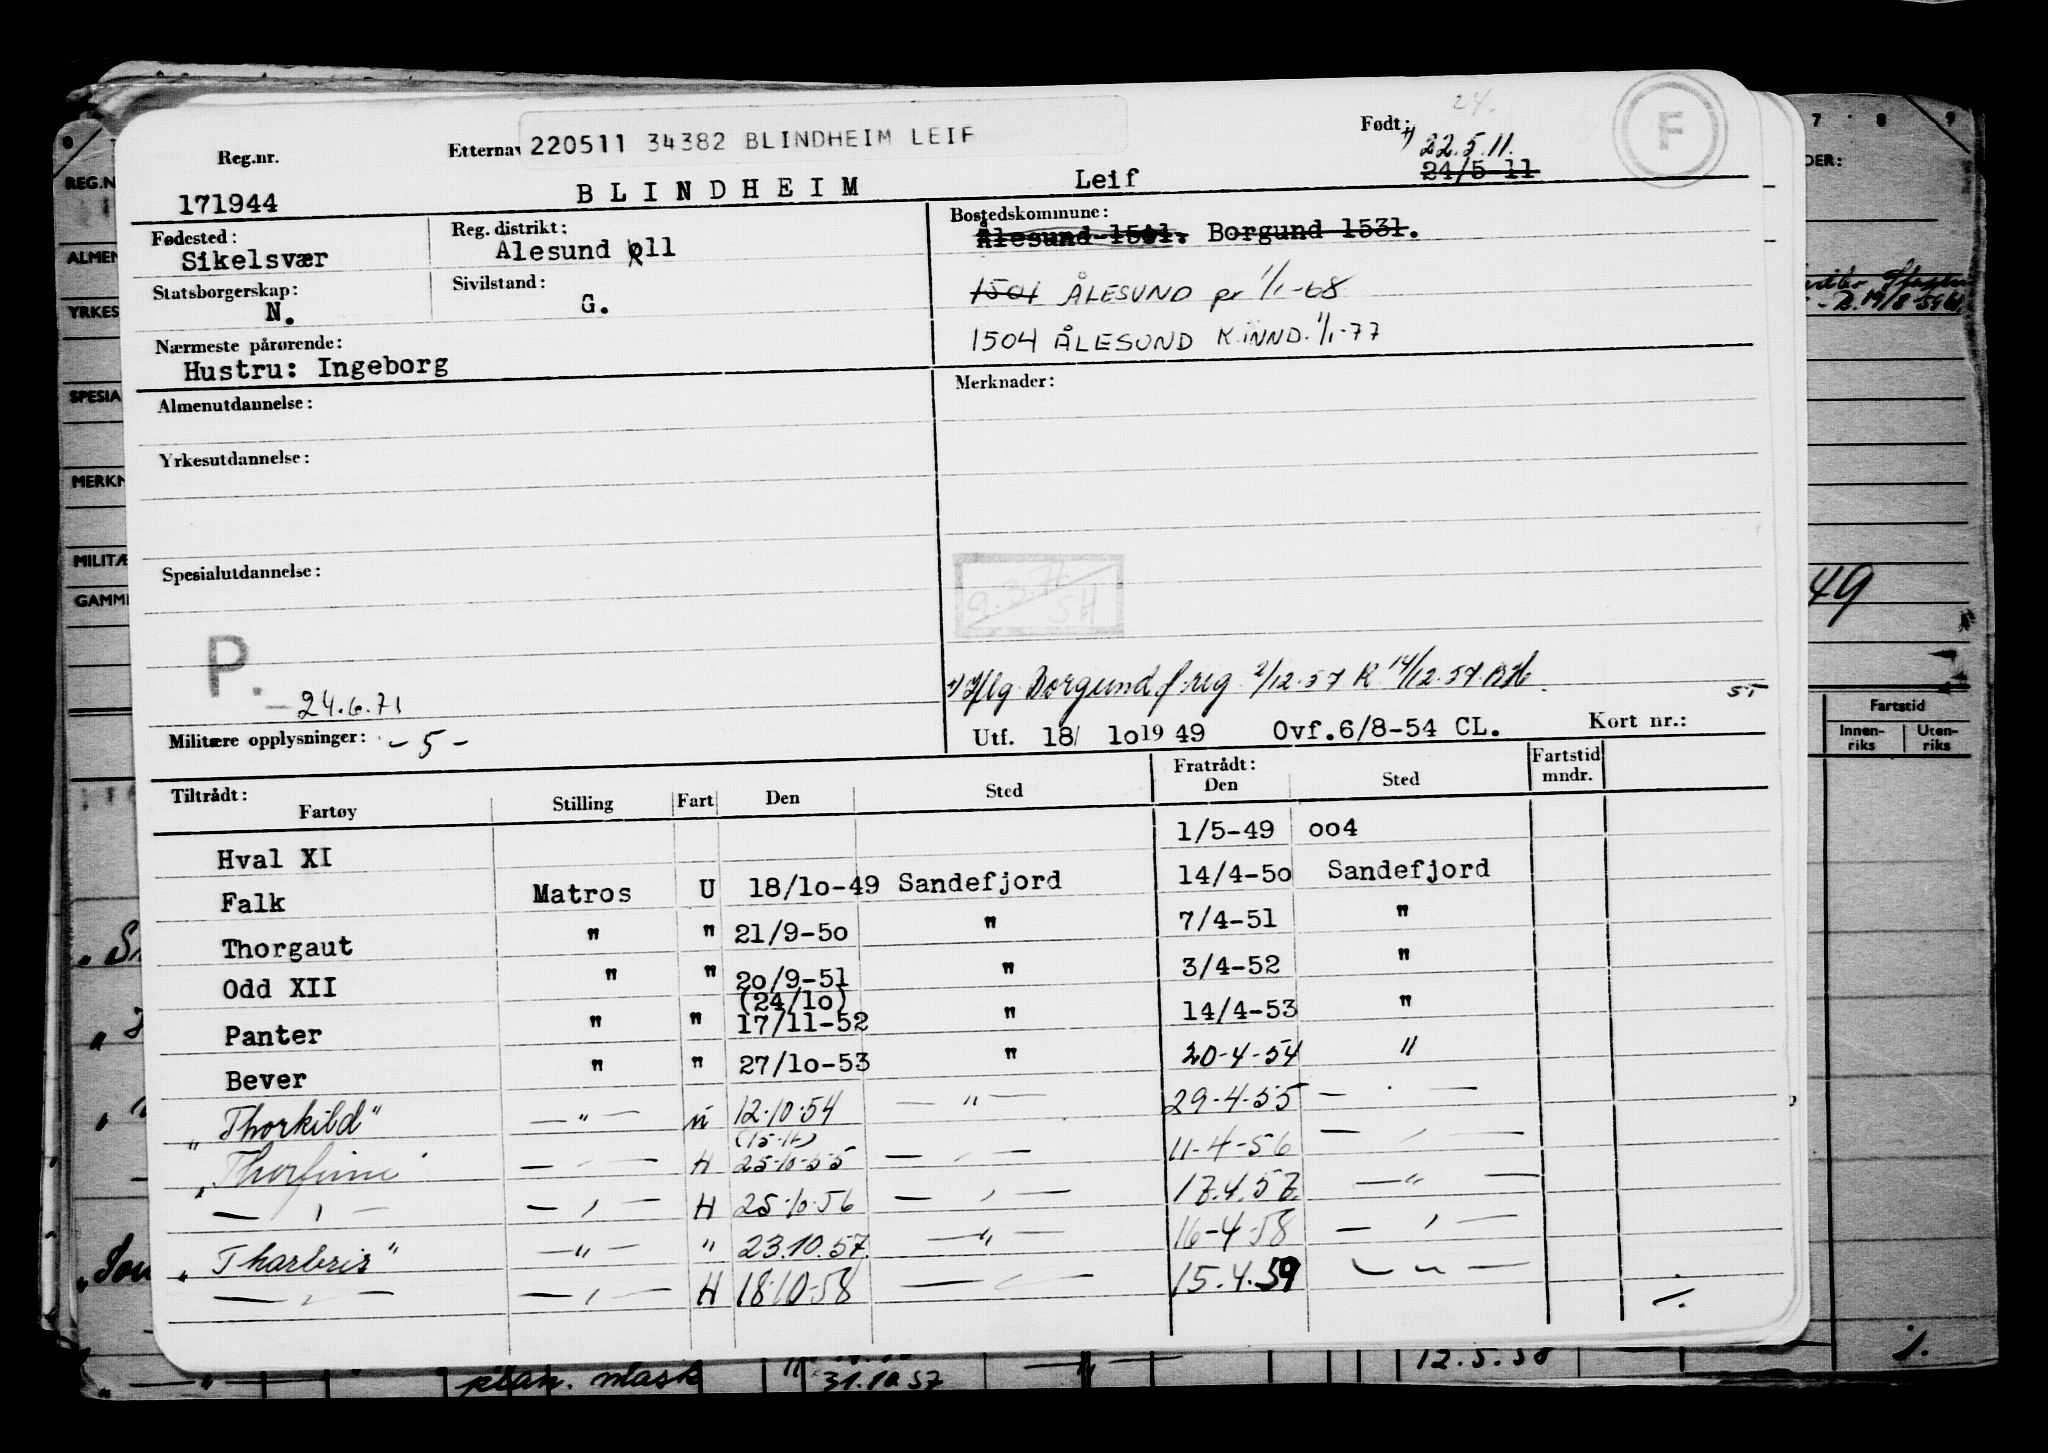 24.
Født: 1) 22.5.11.
F
Reg.nr. Etternav 220511 34382 BLINDHEIM LEIF
171944 BLINDHEIM Leif 24/5-11
Fødested: Reg. distrikt: Bostedskommune:
Sikelsvær Alesund 011 Ålesund 1501. Borgund 1531.
Statsborgerskap: Sivilstand: 1501 ÅLESUND pr 1/1-68
N. G.
1504 ÅLESUND K.INND. 1/1-77
Nærmeste pårørende:
Hustru: Ingeborg
Almenutdannelse: Merknader:
Yrkesutdannelse:
Spesialutdannelse:
9.3.77
SH
P.
- 24.6.71
1) Iflg Borgund f.reg 2/12.57 K 14/12.57.
Militære opplysninger: -5- Utf. 18/ 10 19 49 Ovf.6/8-54 CL. Kort nr.:
Tiltrådt: Fratrådt: Fartstid mndr.
Fartøy Stilling Fart Den Sted Den Sted
Hval XI 1/5-49 oo4
Falk Matros U 18/1o-49 Sandefjord 14/4-5o Sandefjord
Thorgaut " " 21/9-5o " 7/4-51 "
Odd XII " " 2o/9-51 " 3/4-52 "
(24/1o)
Panter " " 17/11-52 " 14/4-53 "
Bever " " 27/1o-53 " 20-4-54 "
"Thorkild" — " — u 12.10.54 — " — 29-4-55 — " —
"Thorfinn" — " — H 25-10-55 — " — 11-4-56 — " —
— " — — " — H 25.10.56 — " — 17.4.57. — " —
"Thorbris" — " — " 23.10.57. — " — 16-4-58 — " —
— " — — " — H 18.10.58 — " — 15.4.59 — " —
7 8 9
REG.N
ALMEN
YRKES
SPESIA
MERKN
MILITÆ
GAMME
DER:
49
Fartstid
Innen-riks Uten-riks
plan. mask
31.10.57
12.5.58
1.